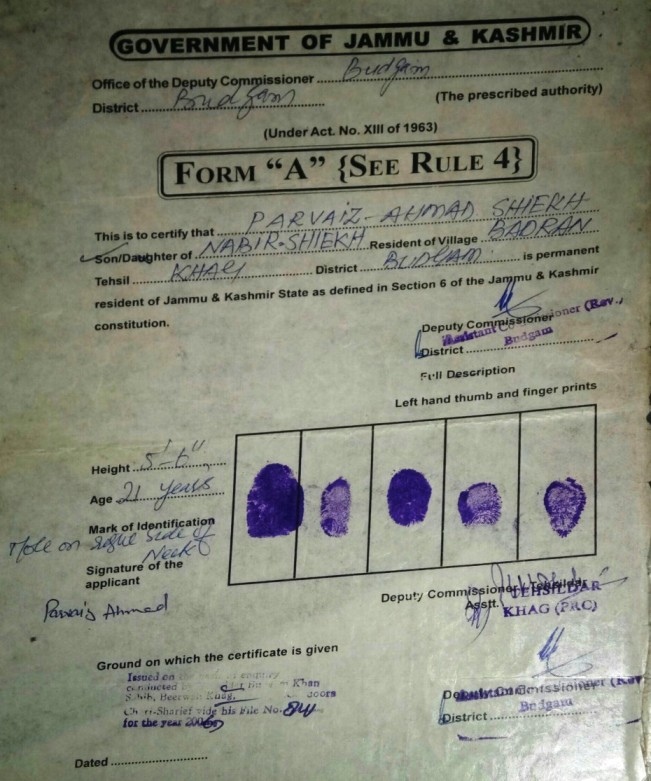 GOVERNMENT OF JAMMU & KASHMIR
Office of the Deputy Commissioner Budgam
District Budgam (The prescribed authority)
(Under Act. No. XIII of 1963)
FORM "A" {SEE RULE 4}
This is to certify that PARVAIZ-AHMAD SHIEKH
Son/Daughter of NABIR-SHIEKH Resident of Village BADRAN
Tehsil KHAG District BUDGAM is permanent
resident of Jammu & Kashmir State as defined in Section 6 of the Jammu & Kashmir
constitution.
Deputy Commissioner
Assistant Commissioner (Rev.)
Budgam
District
Full Description
Left hand thumb and finger prints
Height 5'-6"
Age 21 years
Mark of Identification
Mole on side of
Neck
Signature of the
applicant
Parvaiz Ahmad
Deputy Commissioner Tehsildar
Asstt.
TEHSILDAR
KHAG (PRC)
Ground on which the certificate is given
Issued on
conducted Khan
Sahib, Beerwah
Chari-Sharief vide his File No. 84
for the year
Deputy Commissioner
Assistant Commissioner (Rev
Budgam
District
Dated